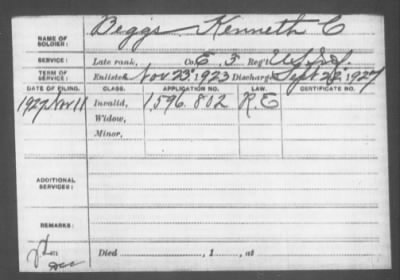 NAME OF SOLDIER: Beggs Kenneth C
SERVICE: Late rank, Co. E, 3 Reg't U.S. Inf.
TERM OF SERVICE: Enlisted Nov 23, 1923 Discharged Sept 22, 1927
DATE OF FILING. CLASS. APPLICATION NO. LAW. CERTIFICATE NO.
1927 Nov 11 Invalid, 1,596,802 R.E
Widow,
Minor,
ADDITIONAL SERVICES:
REMARKS:
Died , 1 , at